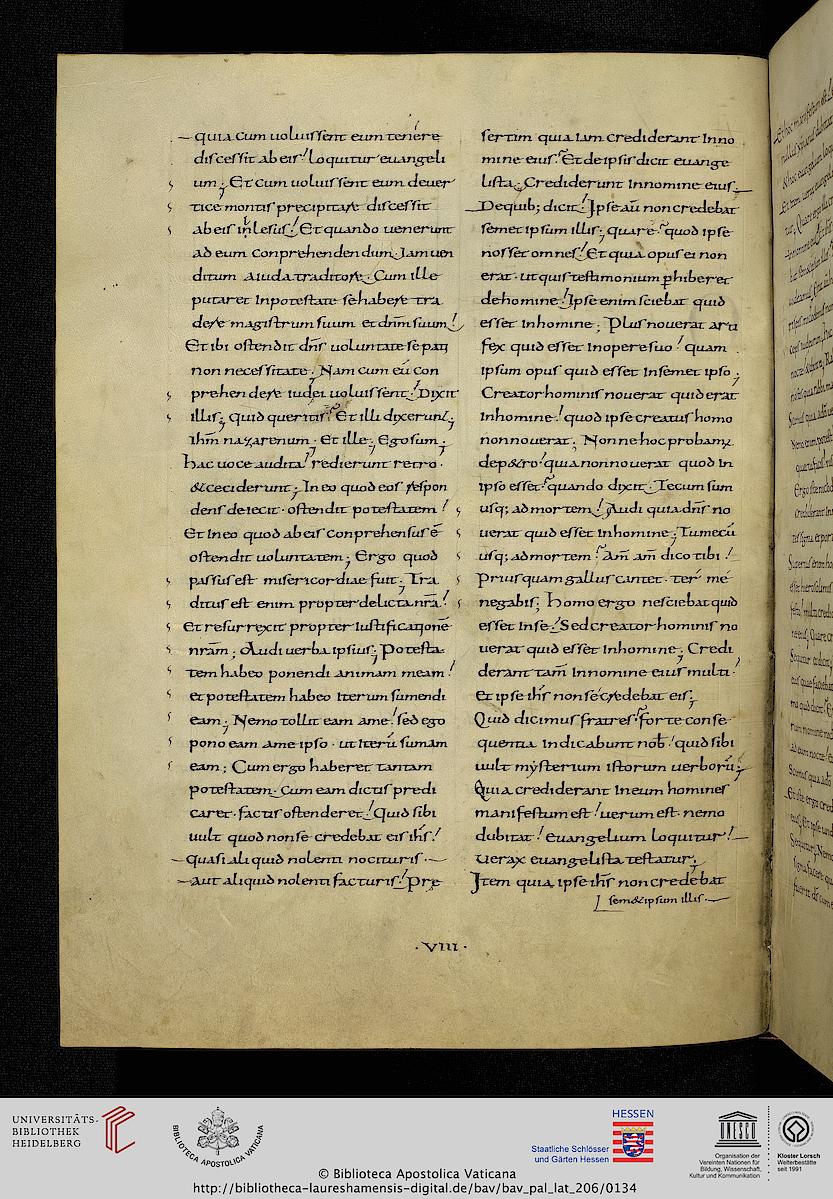 quia cum uoluissent eum tenere
discessit ab eis! loquitur euangeli
um; Et cum uoluissent eum de uer
tice montis precipitare discessit
ab eis inlesus! Et quando uenerunt
ad eum conprehendendum. Iam uen
ditum a iuda traditore. Cum ille
putaret in potestate se habere tra
dere magistrum suum et dnm suum!
Et ibi ostendit dns uoluntate se pati
non necessitate. Nam cum eu con
prehendere iudei uoluissent! Dixit
illis; quid queritis? Et illi dixerunt;
Ihm nazarenum. Et ille; Ego sum;
hac uoce audita! redierunt retro.
& ceciderunt; In eo quod eos respon
dens deiecit. ostendit potestatem!
Et in eo quod ab eis conprehensus ē
ostendit uoluntatem; Ergo quod
passus est misericordiae fuit; Tra
ditus est enim propter delicta nrā!
Et resurrexit propter iustificationē
nrām; Audi uerba ipsius; Potesta
tem habeo ponendi animam meam!
et potestatem habeo iterum sumendi
eam; Nemo tollit eam a me! sed ego
pono eam a me ipso. ut iterū sumam
eam; Cum ergo haberet tantam
potestatem. Cum eam dictus predi
caret. factis ostenderet! Quid sibi
uult quod non se credebat eis ihs!
quasi aliquid nolenti nocituris.
Aut aliquid nolenti facturis! Pre
sertim quia iam crediderant in no
mine eius? Et de ipsis dicit euange
lista; Crediderunt in nomine eius;
De quib; dicit! Ipse aū non credebat
semet ipsum illis; quare? quod ipse
nosset omnes! Et quia opus ei non
erat. ut quis testimonium phiberet
de homine! Ipse enim sciebat quid
esset in homine; Plus nouerat arti
fex quid esset in opere suo! quam
ipsum opus quid esset in semet ipso;
Creator hominis nouerat quid erat
in homine! quod ipse creatus homo
non nouerat; Nonne hoc probam
de p&ro! quia non nouerat quod in
ipso esset? quando dixit; Tecum sum
usq; ad mortem! Audi quia dns no
uerat quid esset in homine; Tu mecū
usq; ad mortem? Am am dico tibi!
Prius quam gallus cantet. ter me
negabis; homo ergo nesciebat quid
esset in se! Sed creator hominis no
uerat quid esset in homine; Credi
derant tam in nomine eius multi!
Et ipse ihs non se credebat eis;
Quid dicimus fratres? forte conse
quentia indicabunt nob! quid sibi
uult mysterium istorum uerborū;
Quia crediderant in eum homines
manifestum est! uerum est. nemo
dubitat! euangelium loquitur!
uerax euangelista testatur;
Item quia ipse ihs non credebat
sem&ipsum illis.
.VIII.
UNIVERSITÄTS-
BIBLIOTHEK
HEIDELBERG
BIBLIOTECA APOSTOLICA VATICANA
HESSEN
Staatliche Schlösser
und Gärten Hessen
UNESCO
Organisation der
Vereinten Nationen für
Bildung, Wissenschaft,
Kultur und Kommunikation
Kloster Lorsch
Welterbestätte
seit 1991
© Biblioteca Apostolica Vaticana
http://bibliotheca-laureshamensis-digital.de/bav/bav_pal_lat_206/0134